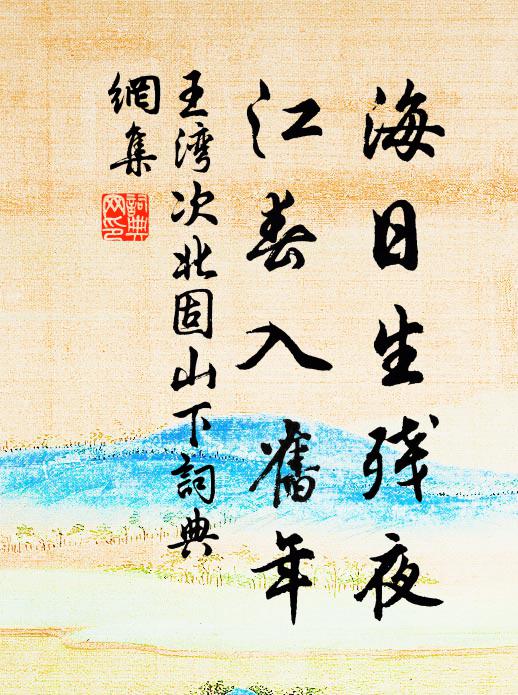 海日生残夜
江春入舊年
王湾次北固山下詞典
網集
詞典
网印